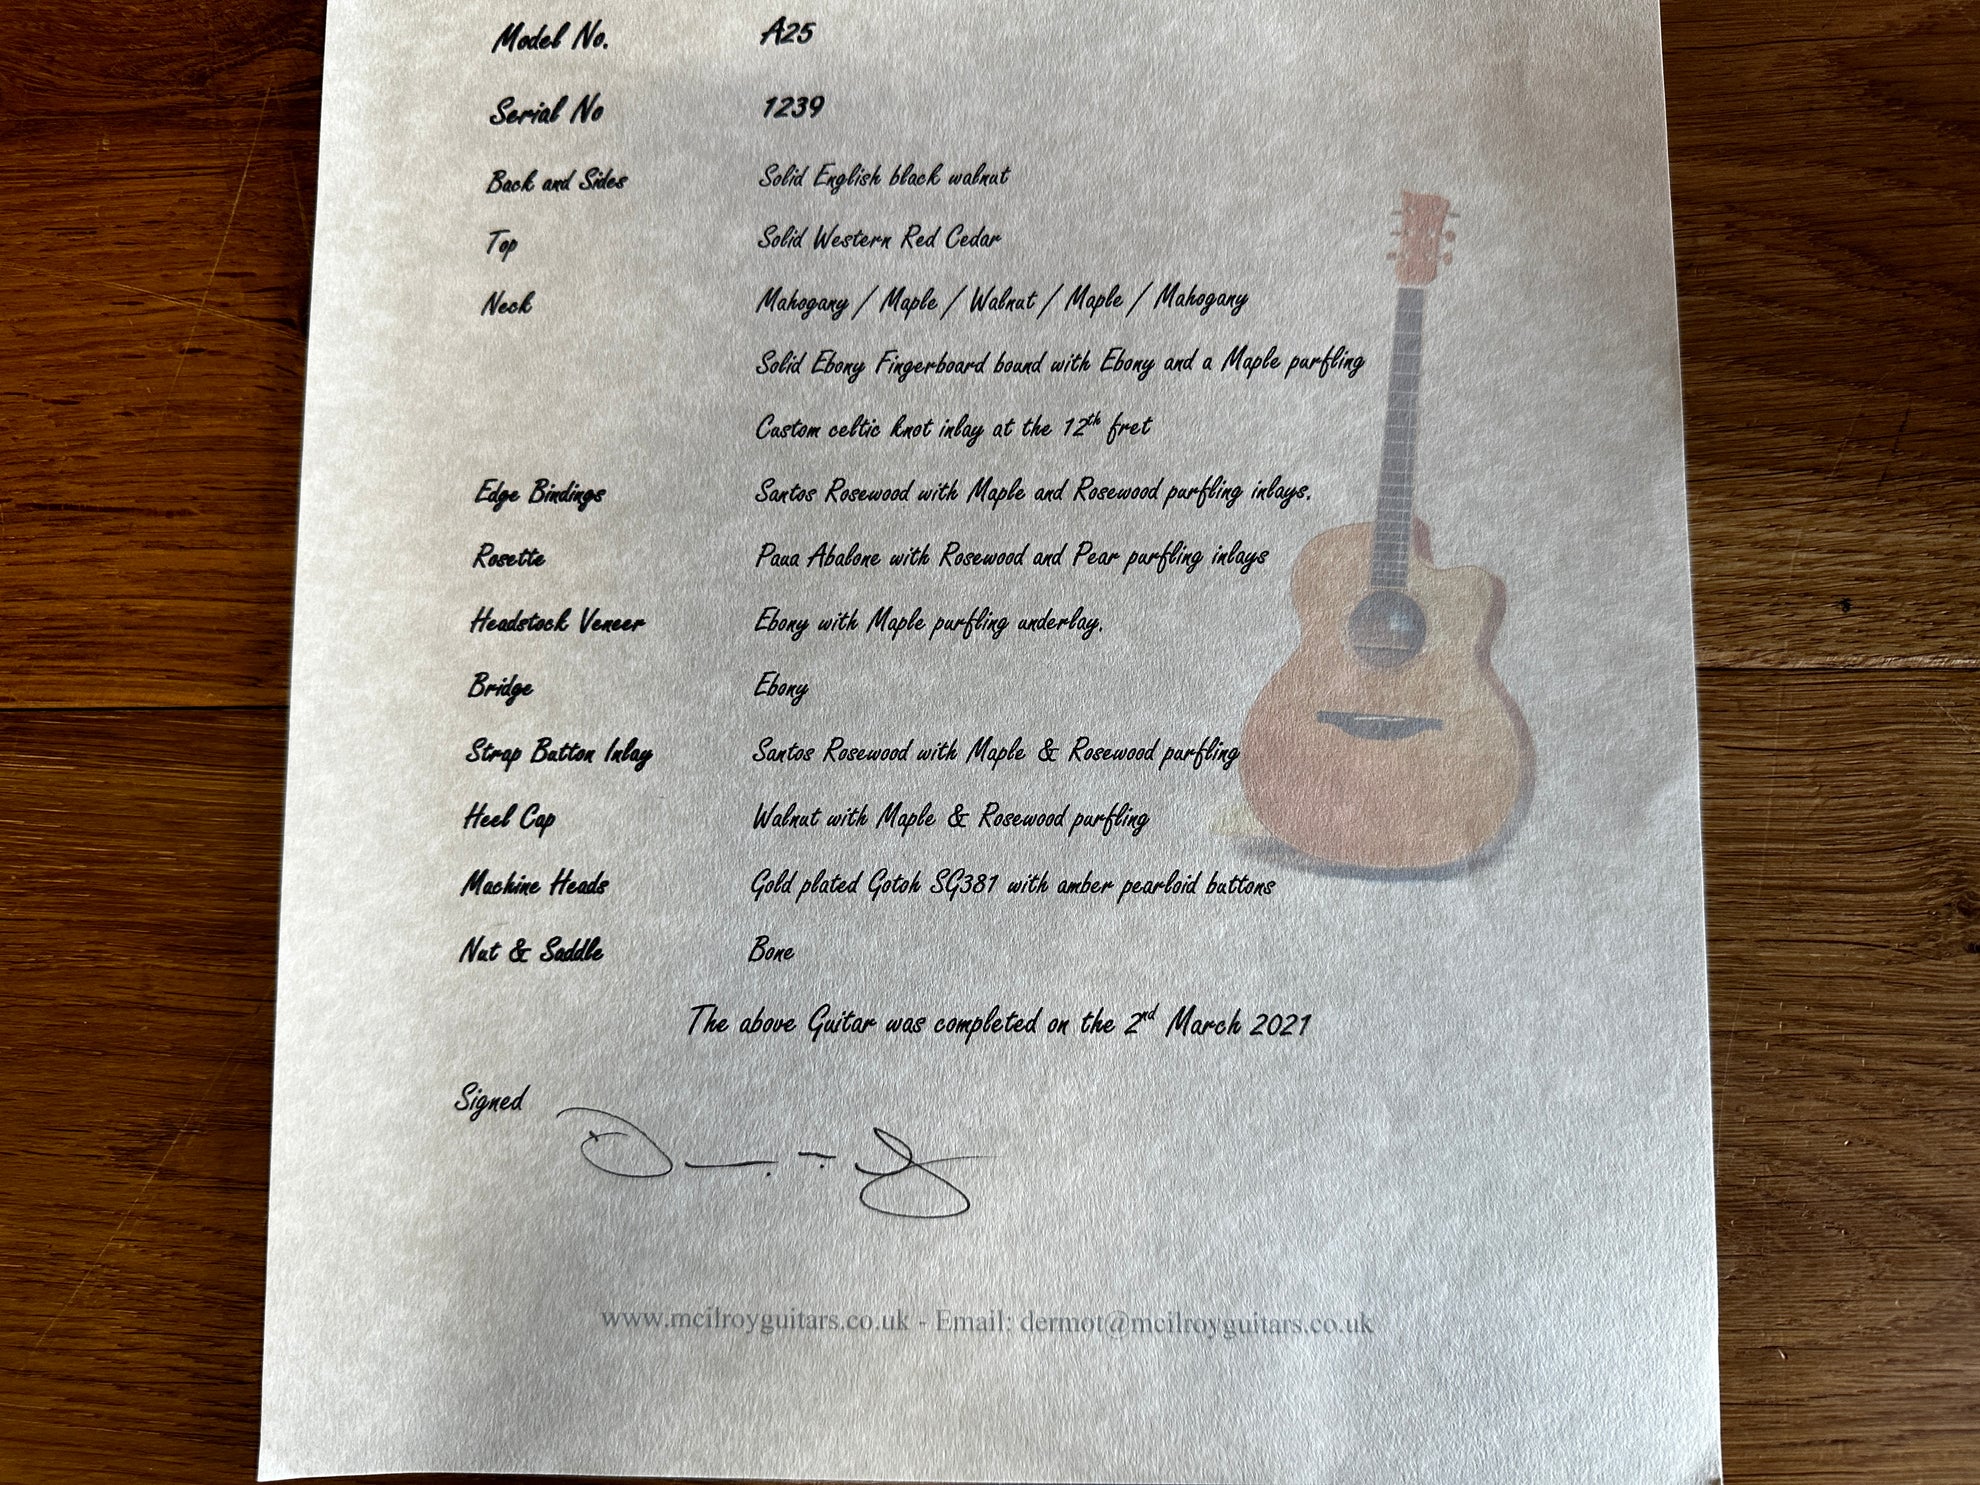 Model No. A25
Serial No 1239
Back and Sides Solid English black walnut
Top Solid Western Red Cedar
Neck Mahogany / Maple / Walnut / Maple / Mahogany
Solid Ebony Fingerboard bound with Ebony and a Maple purfling
Custom celtic knot inlay at the 12th fret
Edge Bindings Santos Rosewood with Maple and Rosewood purfling inlays.
Rosette Paua Abalone with Rosewood and Pear purfling inlays
Headstock Veneer Ebony with Maple purfling underlay.
Bridge Ebony
Strap Button Inlay Santos Rosewood with Maple & Rosewood purfling
Heel Cap Walnut with Maple & Rosewood purfling
Machine Heads Gold plated Gotoh SG381 with amber pearloid buttons
Nut & Saddle Bone
The above Guitar was completed on the 2nd March 2021
Signed
www.mcilroyguitars.co.uk - Email: dermot@mcilroyguitars.co.uk